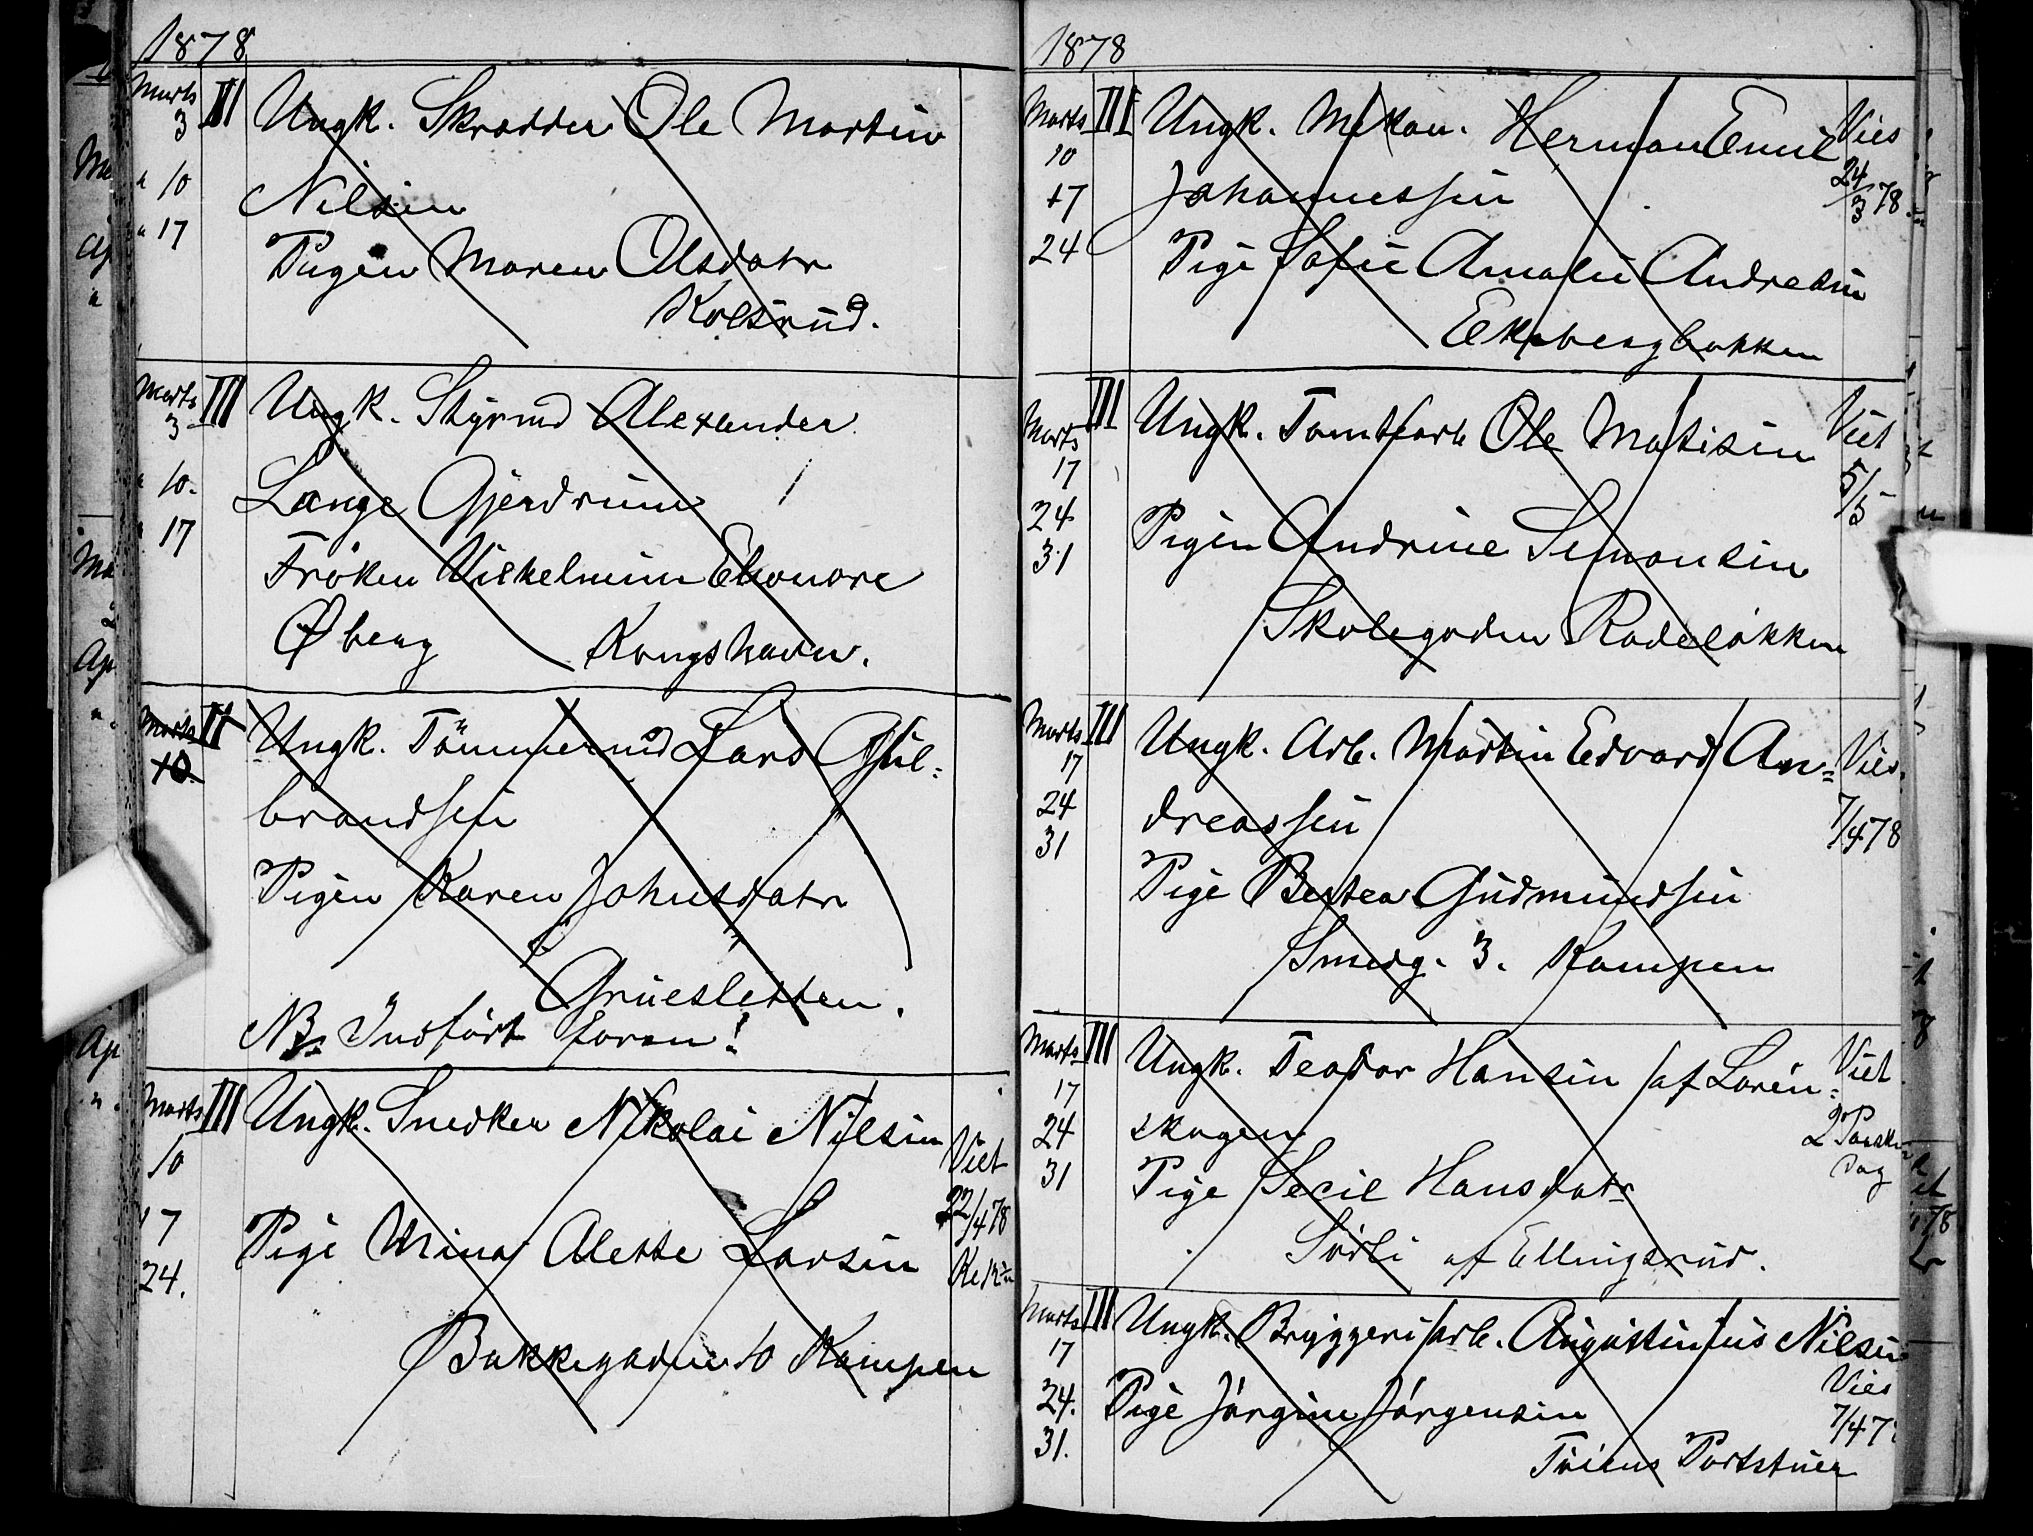 1878
Marts III Ungk. Skrædder Ole Martin
3
" 10 Nilsen
" 17 Pigen Maren Olsdatr
Kolsrud.
Marts III Ungk. Styrmd Alexander
3
" 10. Lange Gjerdrum
" 17 Frøken Vilhelmine Elonore
Øberg Kongshavn.
Marts II Ungk. Tömmermd Lars Gul=
10. brandsen
Pigen Karen Johnsdatr
Grüesletten.
NB. Indført foran!
Marts III Ungk. Snedker Nikolai Nilsen Viet
10 22/4 78
17 Pige Mina Alette Larsen
24.
Bakkegaden 10 Kampen
1878
Marts III Ungk. Mekan. Herman Emil Vies
10 24/3 78.
17 Johannessen
24 Pige Sofie Amalie Andresen
Ekebergbakken
Marts III Ungk. Tomtearb Ole Matisen Viet
17 5/5
24 Pigen Andrine Simonsen
31 Skolegaden Rodeløkken
Marts III Ungk. Arb. Martin Edvard An= Vies.
17
24 dreassen 7/4 78
31 Pige Bertea Gudmundsen
Smedg. 3. Kampen
Marts III Ungk. Teodor Hansen af Loren= Viet
17
24 skogen 2 Paaske
31 Pige Secil Hansdatr Dag
Sørli af Ellingsrud.
Marts III Ungk. Bryggeriarb. Augustinius Nilsen
17 Vies
24. Pige Jørgine Jørgensen 7/4 7
31. Portstuen